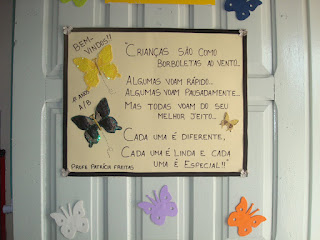 BEM-
VINDOS!!
"CRIANÇAS SÃO COMO
BORBOLETAS AO VENTO...
ALGUMAS VOAM RÁPIDO...
ALGUMAS VOAM PAUSADAMENTE...
MAS TODAS VOAM DO SEU
MELHOR JEITO...
CADA UMA É DIFERENTE,
CADA UMA É LINDA E CADA
UMA É ESPECIAL!!"
ANOS
A/B
PROFE PATRÍCIA FREITAS